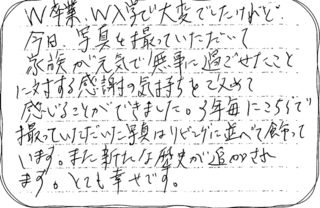 W卒業、W入学で大変でしたけれど、
今日写真を撮っていただいて
家族が元気で無事に過ごせたこと
に対する感謝の気持ちを改めて
感じることができました。3年毎にこちらで
撮っていただいた写真はリビングに並べて飾って
います。また新たな歴史が追加され
ます。とても幸せです。